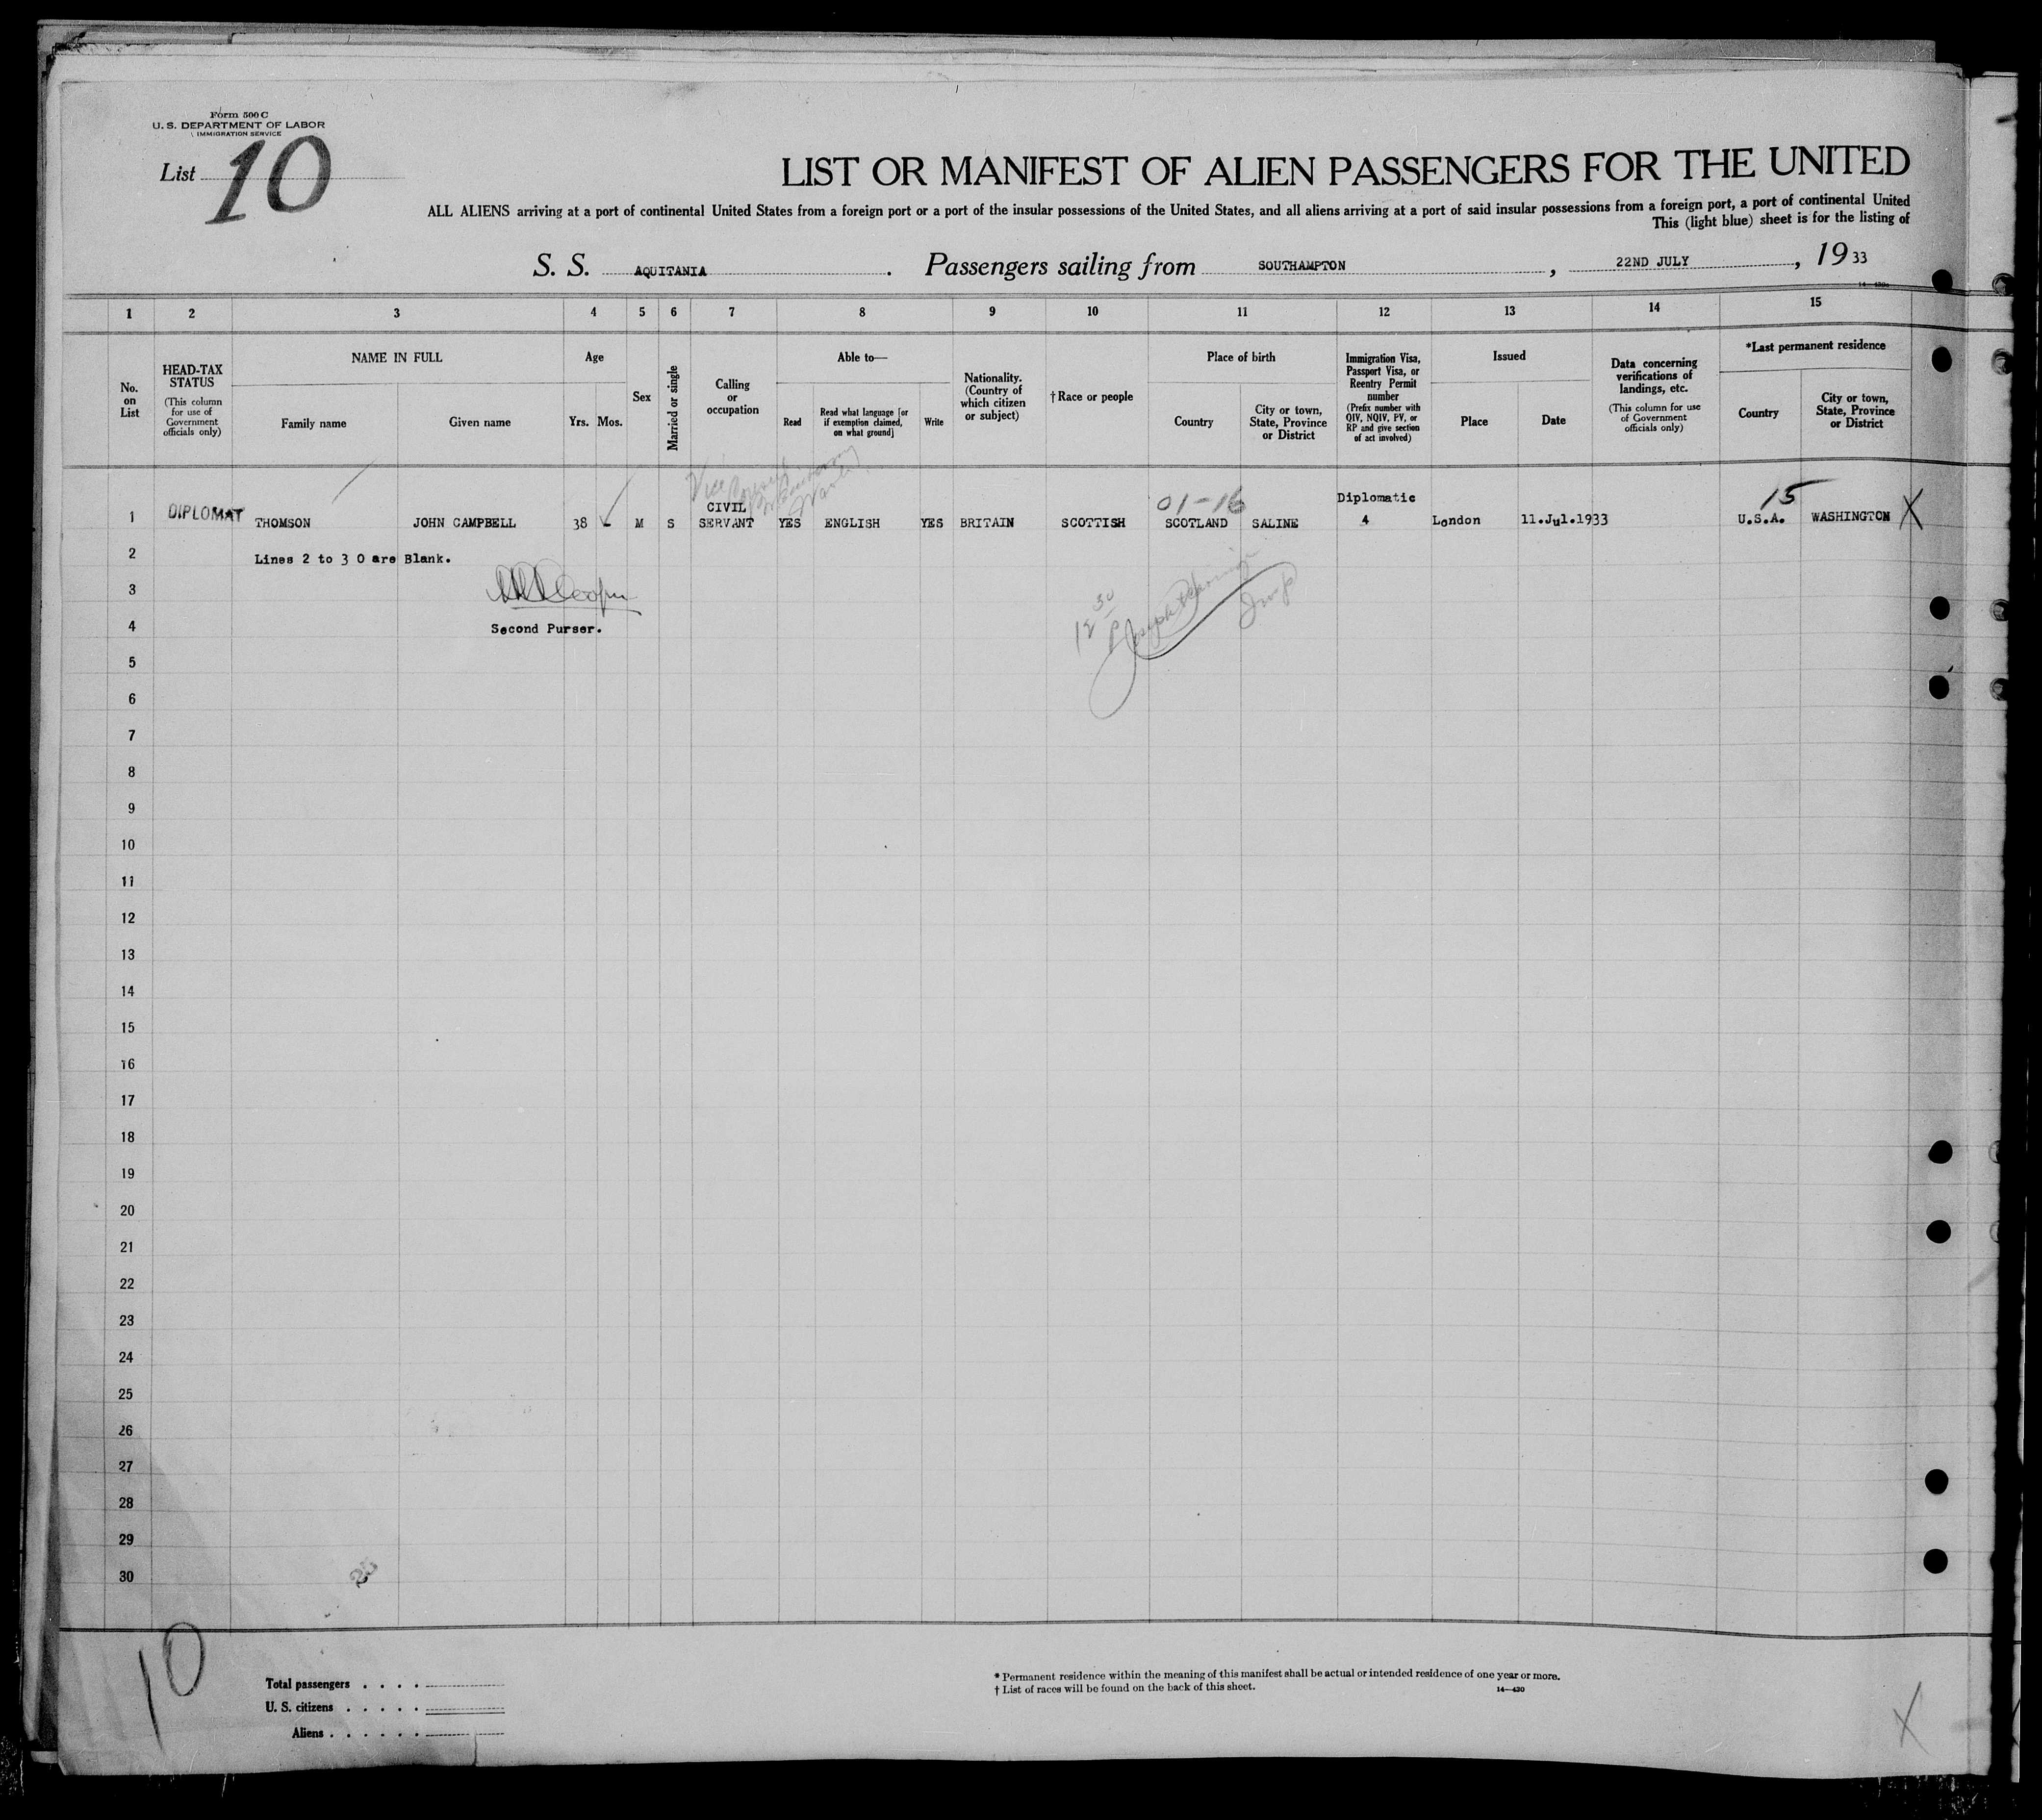 Form 500 C
U. S. DEPARTMENT OF LABOR
IMMIGRATION SERVICE
List 10
LIST OR MANIFEST OF ALIEN PASSENGERS FOR THE UNITED
ALL ALIENS arriving at a port of continental United States from a foreign port or a port of the insular possessions of the United States, and all aliens arriving at a port of said insular possessions from a foreign port, a port of continental United
This (light blue) sheet is for the listing of
S. S. AQUITANIA . Passengers sailing from SOUTHAMPTON , 22ND JULY , 19 33
14—430a
1 2 3 4 5 6 7 8 9 10 11 12 13 14 15
No. on List
HEAD-TAX STATUS
(This column for use of Government officials only)
NAME IN FULL
Family name Given name
Age
Yrs. Mos.
Sex
Married or single
Calling or occupation
Able to—
Read Read what language [or if exemption claimed, on what ground] Write
Nationality. (Country of which citizen or subject)
†Race or people
Place of birth
Country City or town, State, Province or District
Immigration Visa, Passport Visa, or Reentry Permit number
(Prefix number with QIV, NQIV, PV, or RP and give section of act involved)
Issued
Place Date
Data concerning verifications of landings, etc.
(This column for use of Government officials only)
*Last permanent residence
Country City or town, State, Province or District
Vice
01-16 Diplomatic 15
1 DIPLOMAT THOMSON JOHN CAMPBELL 38 - M S CIVIL SERVANT YES ENGLISH YES BRITAIN SCOTTISH SCOTLAND SALINE 4 London 11.Jul.1933 U.S.A. WASHINGTON X
2 Lines 2 to 3 0 are Blank.
3
4 Second Purser.
5
6
7
8
9
10
11
12
13
14
15
16
17
18
19
20
21
22
23
24
25
26
27
28
29
30
10
Total passengers . . . .
U. S. citizens . . . . .
Aliens . . . . . .
* Permanent residence within the meaning of this manifest shall be actual or intended residence of one year or more.
† List of races will be found on the back of this sheet.
14—430
X